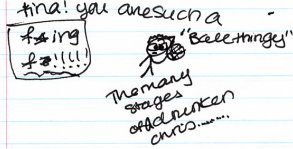 tina! you are such a
f*ing
f*!!!!!
"Ball-thingy"
The many
stages
of drunken
chris.......